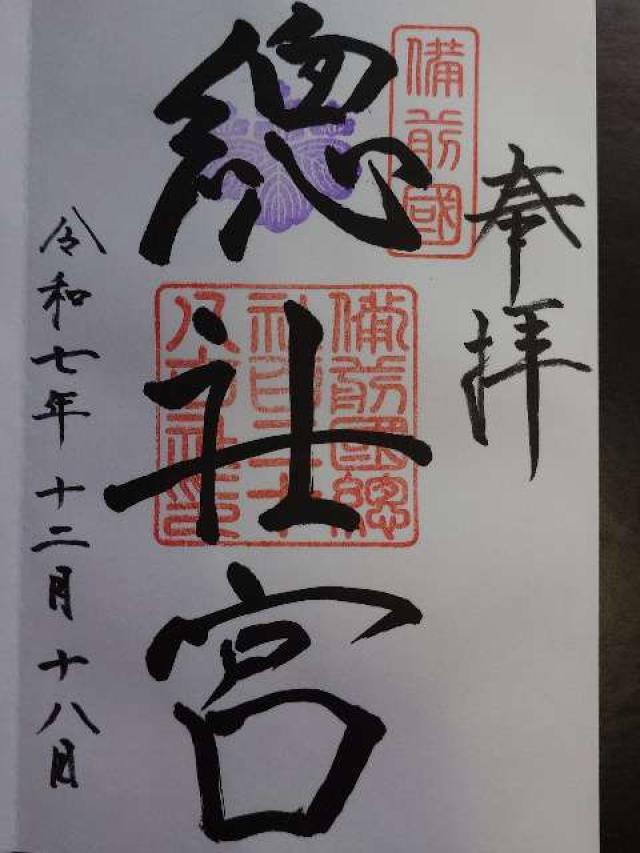 奉拝
備前國
總社宮
備前國總
社印百二十
八市社印
令和七年十二月十八日